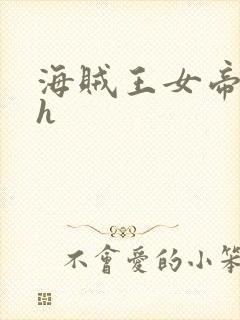 海贼王女帝
h
不會愛的小笨